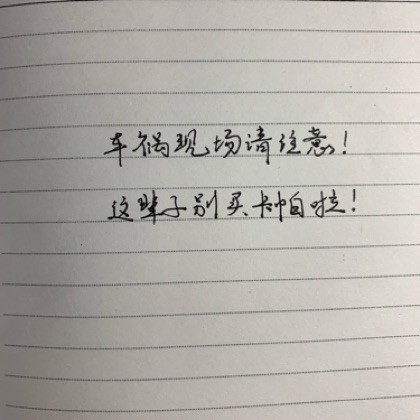 车祸现场请注意!
这辈子别买卡帕啦!